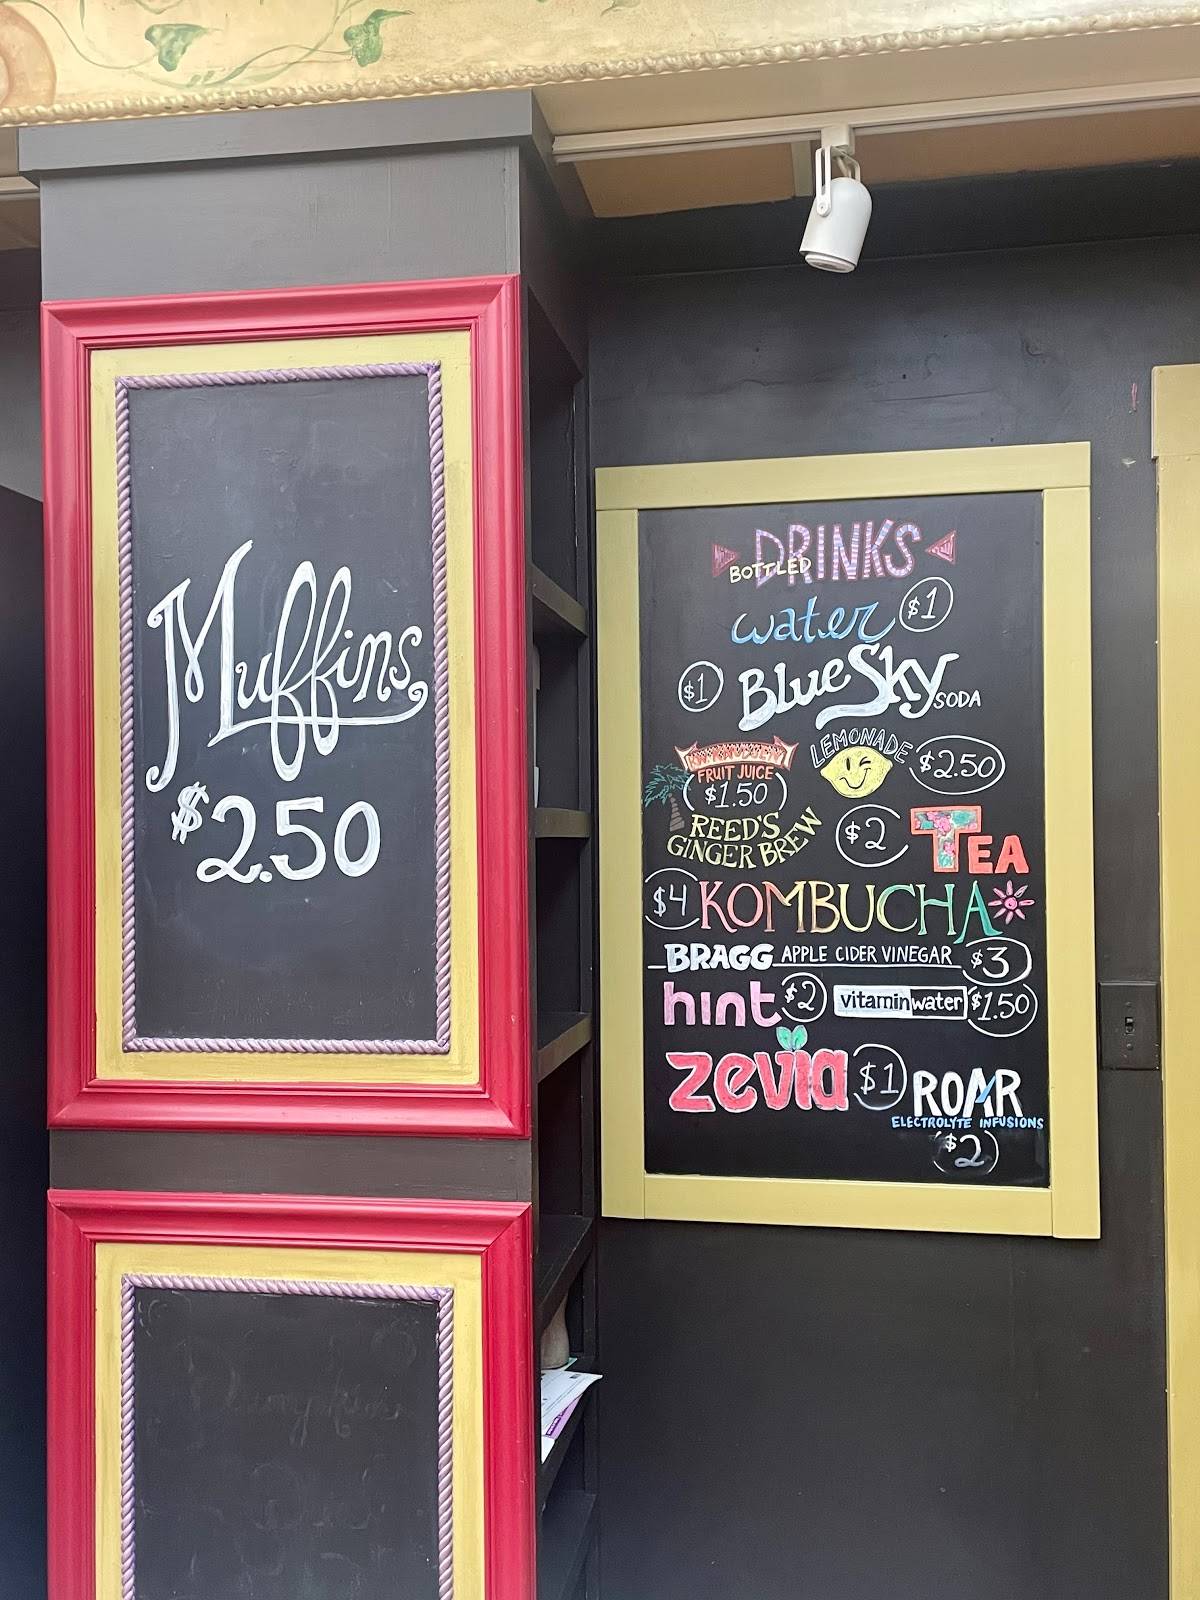 Muffins
$2.50
DRINKS
BOTTLED
water $1
$1 Blue Sky SODA
FRUIT JUICE
$1.50
LEMONADE $2.50
REED'S
GINGER BREW
$2 TEA
$4 KOMBUCHA
BRAGG APPLE CIDER VINEGAR $3
hint $2 vitaminwater $1.50
zevia $1
ROAR
ELECTROLYTE INFUSIONS
$2